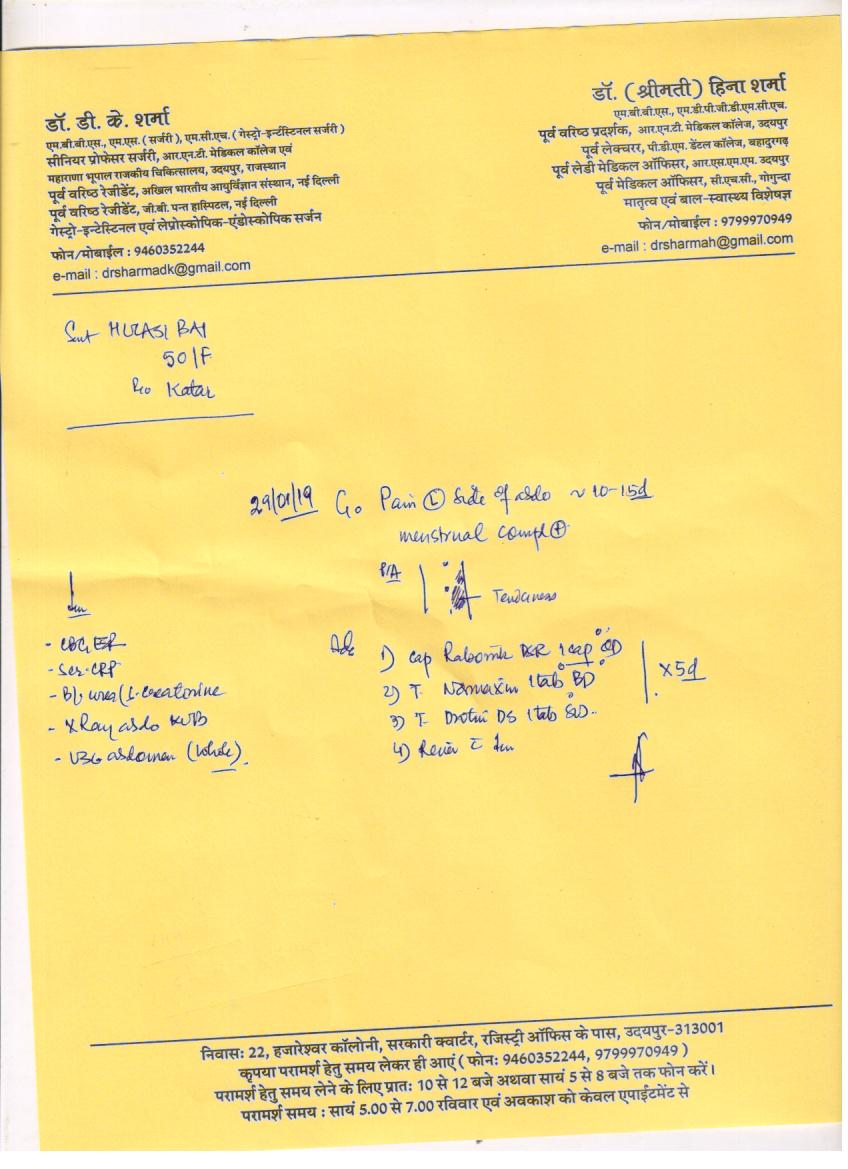 डॉ. डी. के. शर्मा
एम.बी.बी.एस., एम.एस. ( सर्जरी ), एम.सी.एच. ( गेस्ट्रो-इन्टेंस्टिनल सर्जरी )
सीनियर प्रोफेसर सर्जरी, आर.एन.टी. मेडिकल कॉलेज एवं
महाराणा भूपाल राजकीय चिकित्सालय, उदयपुर, राजस्थान
पूर्व वरिष्ठ रेजीडेंट, अखिल भारतीय आयुर्विज्ञान संस्थान, नई दिल्ली
पूर्व वरिष्ठ रेजीडेंट, जी.बी. पन्त हास्पिटल, नई दिल्ली
गेस्ट्रो-इन्टेस्टिनल एवं लेप्रोस्कोपिक-एंडोस्कोपिक सर्जन
फोन/मोबाईल : 9460352244
e-mail : drsharmadk@gmail.com
डॉ. (श्रीमती) हिना शर्मा
एम.बी.बी.एस., एम.डी.पी.जी.डी.एम.सी.एच.
पूर्व वरिष्ठ प्रदर्शक, आर.एन.टी. मेडिकल कॉलेज, उदयपुर
पूर्व लेक्चरर, पी.डी.एम. डेंटल कॉलेज, बहादुरगढ़
पूर्व लेडी मेडिकल ऑफिसर, आर.एस.एम.एम. उदयपुर
पूर्व मेडिकल ऑफिसर, सी.एच.सी., गोगुन्दा
मातृत्व एवं बाल-स्वास्थ्य विशेषज्ञ
फोन/मोबाईल : 9799970949
e-mail : drsharmah@gmail.com
Smt HULASI BAI
50/F
R/o Katar
29/01/19 C/o Pain (L) Side of abdo ~ 10-15d
menstrual compl (+)
P/A
Tenderness
- CBC, ESR
- Ser. CRP
- Bl. urea / S. creatinine
- X Ray abdo KUB
- USG abdomen (Whole)
Adv
1) Cap DSR 1 cap OD
2) T. 1 tab BD
3) T. Drotin DS 1 tab
4) Review
X 5d
निवास: 22, हजारेश्वर कॉलोनी, सरकारी क्वार्टर, रजिस्ट्री ऑफिस के पास, उदयपुर-313001
कृपया परामर्श हेतु समय लेकर ही आएं ( फोन: 9460352244, 9799970949 )
परामर्श हेतु समय लेने के लिए प्रातः 10 से 12 बजे अथवा सायं 5 से 8 बजे तक फोन करें।
परामर्श समय : सायं 5.00 से 7.00 रविवार एवं अवकाश को केवल एपाईंटमेंट से